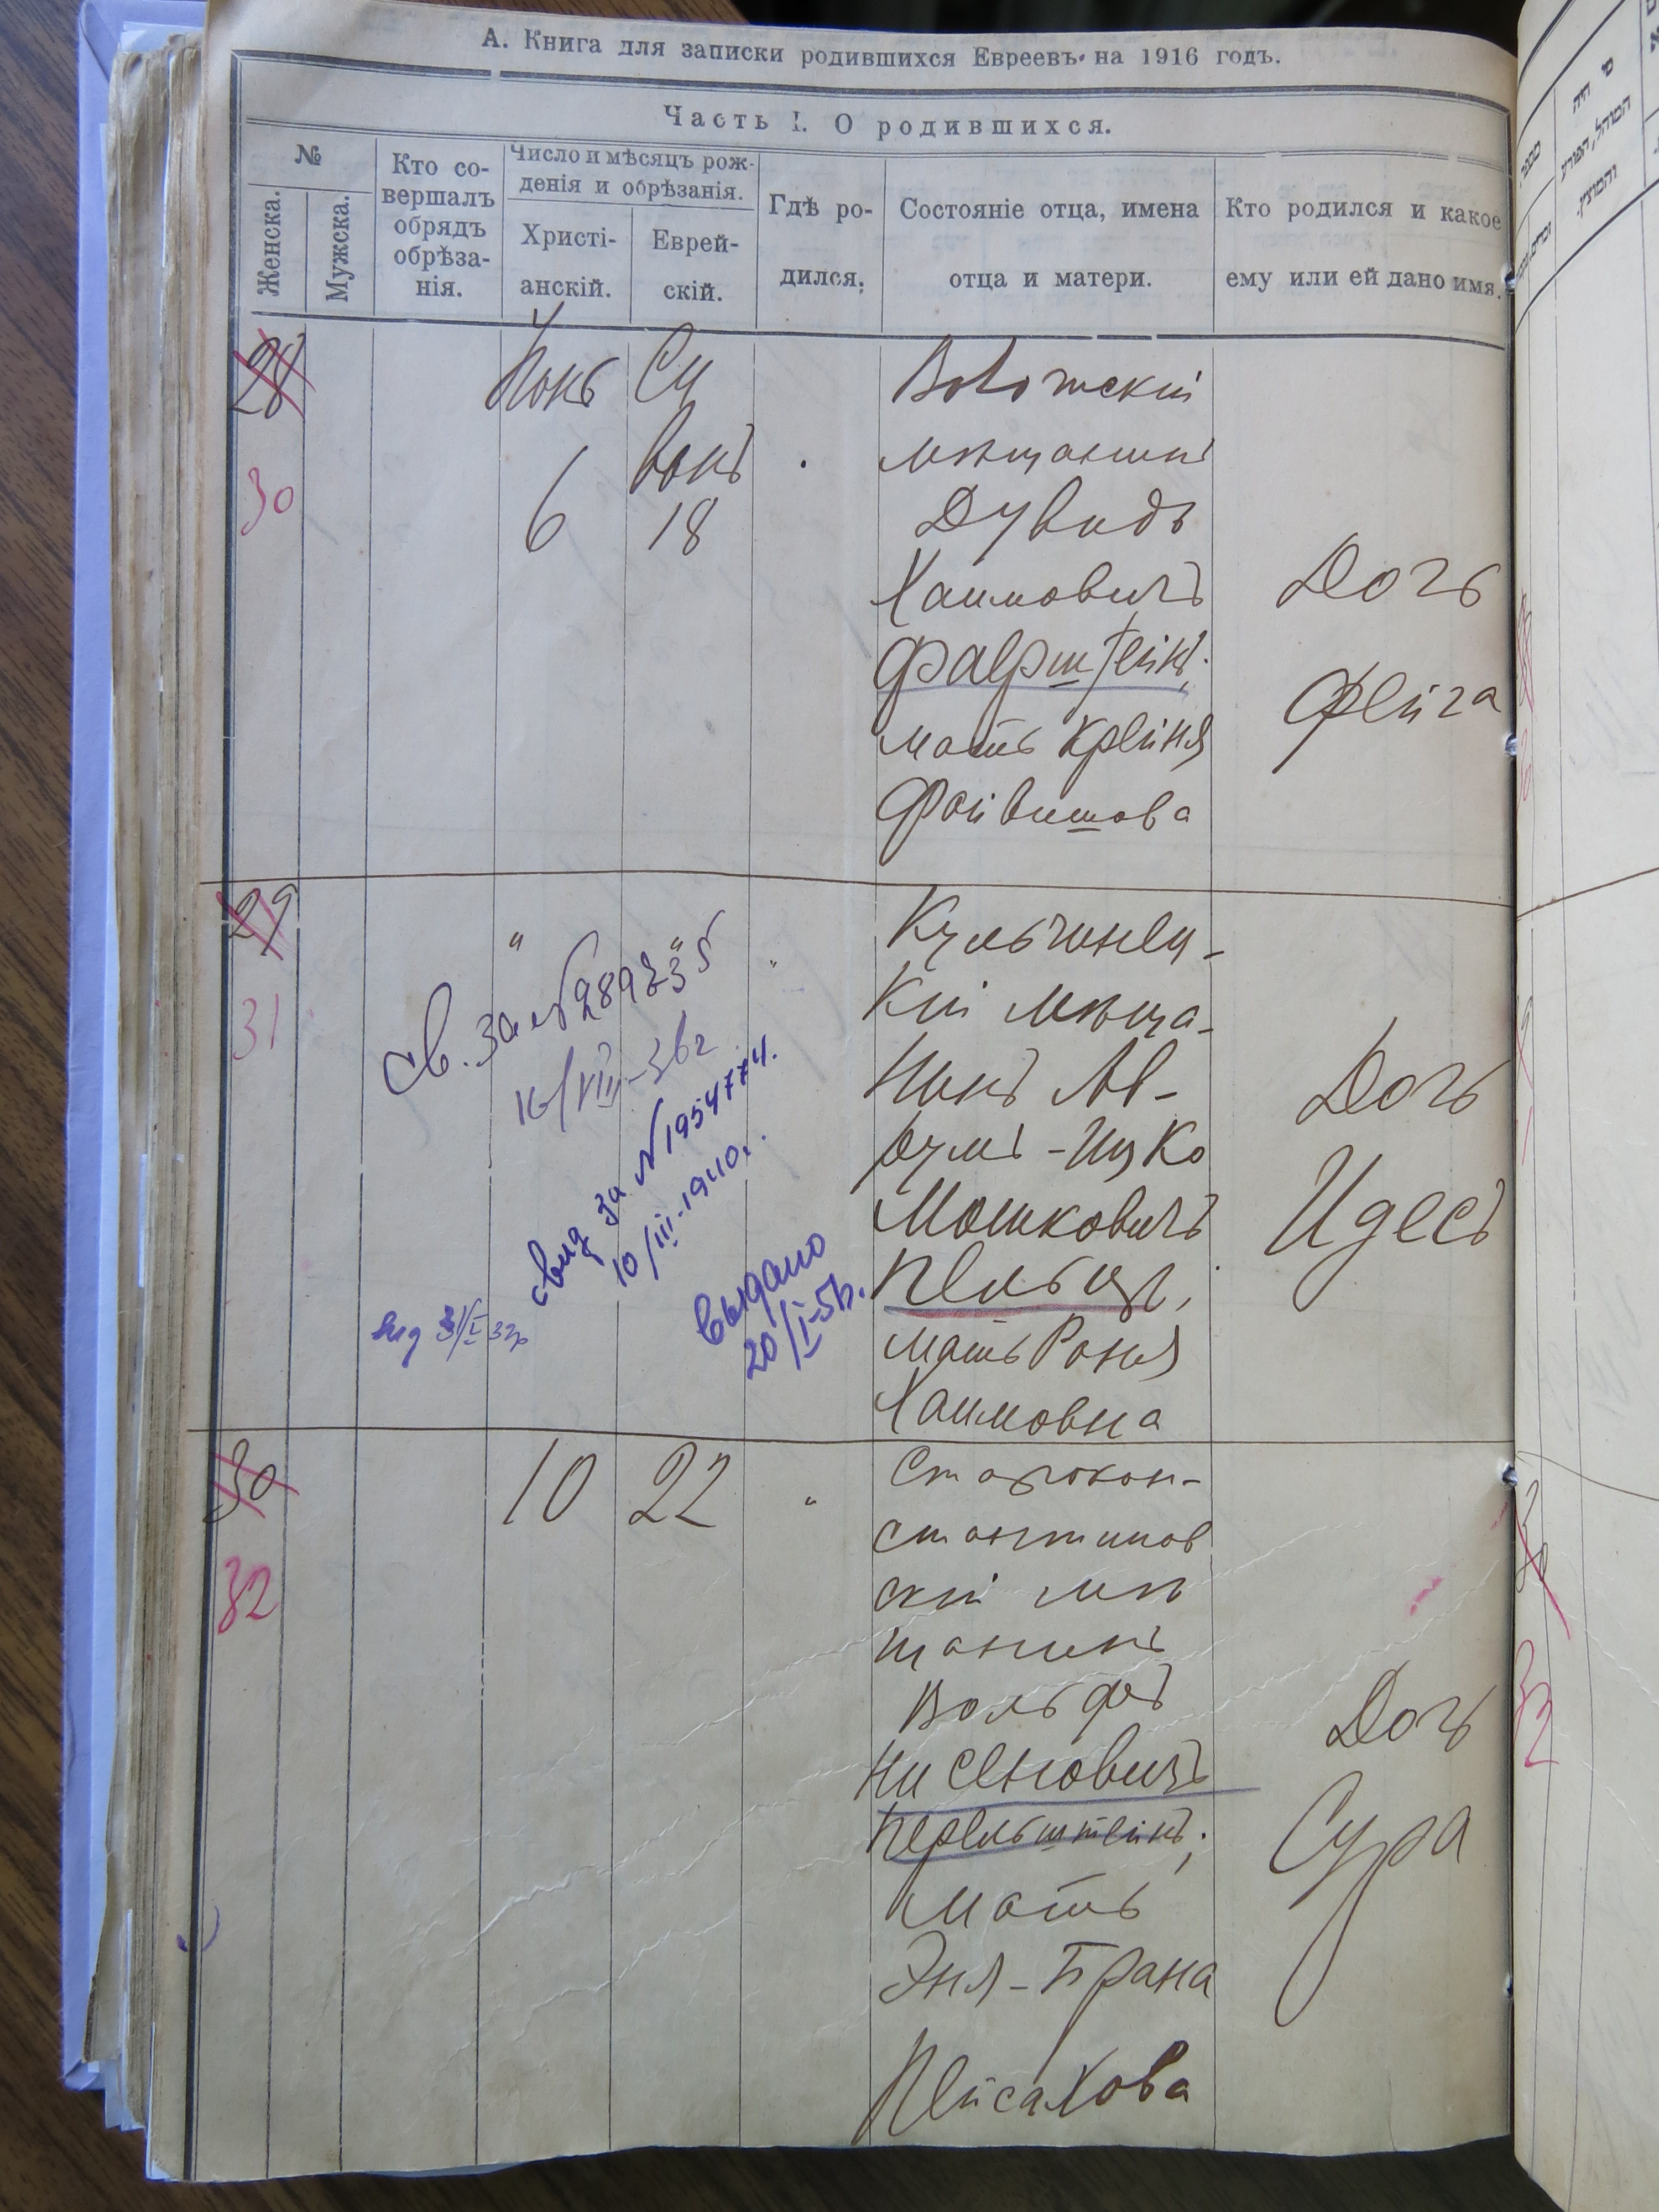 А. Книга для записки родившихся Евреевъ на 1916 годъ.
Часть I. О родившихся.
№
Женска.
Мужска.
Кто со-
вершалъ
обрядъ
обрѣза-
нія.
Число и мѣсяцъ рож-
денія и обрѣзанія.
Христі-
анскій.
Еврей-
скій.
Гдѣ ро-
дился.
Состояніе отца, имена
отца и матери.
Кто родился и какое
ему или ей дано имя.
28
30
6
Си
ванъ
18
мѣщанинъ
Дувидъ
Хаимовичъ
мать Крейня
Файвишова
Дочь
Фейга
29
31
"
"
"
Св. за №
16/VIII-36г
свид за №1954774.
10/III-1940г.
выдано
20/I-5
Кульчинец-
кій мѣща-
нинъ Ав-
румъ-Ицко
Мошковичъ
мать Рания
Хаимовна
Дочь
Идесъ
30
32
10
22
"
Старокон-
стантинов
скій мѣ
щанинъ
Вольфъ
Нисеновичъ
Перельштейнъ;
мать
Эня-Брана
Пейсахова
Дочь
Сура